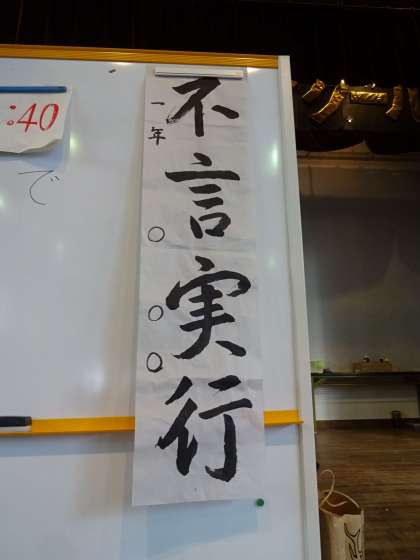 不言実行
一年 〇 〇〇
:40
で